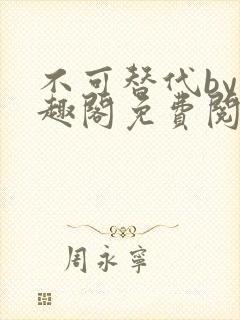 不可替代by
趣阁免费阅
周永宁